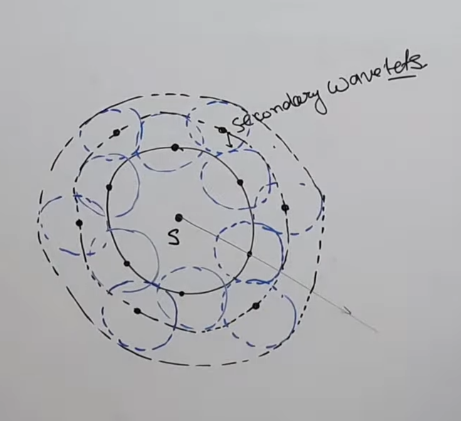 Secondary wavelets
S